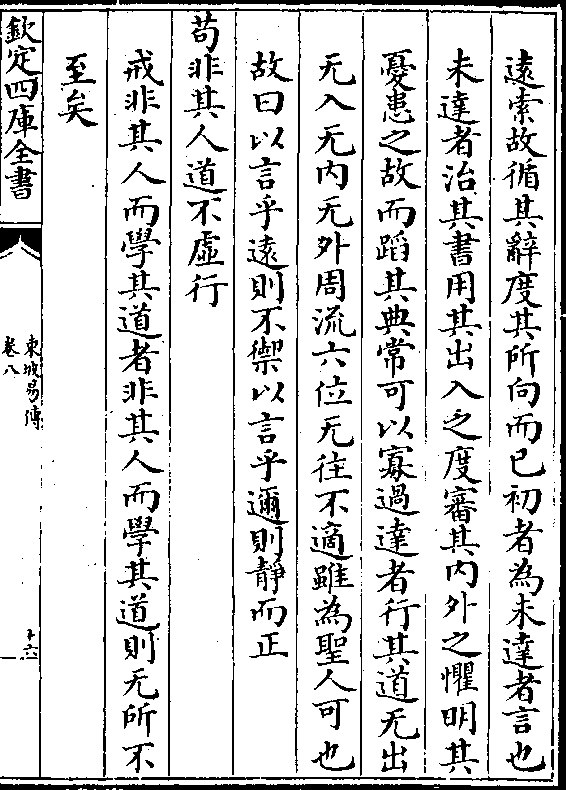 遠索故循其辭度其所向而已初者為未達者言也
未達者治其書用其出入之度審其内外之懼明其
憂患之故而蹈其典常可以寡過達者行其道无出
无入无内无外周流六位无往不適雖為聖人可也
故曰以言乎遠則不禦以言乎邇則靜而正
苟非其人道不虛行
戒非其人而學其道者非其人而學其道則无所不
至矣
欽定四庫全書
東坡易傳
卷八
十六